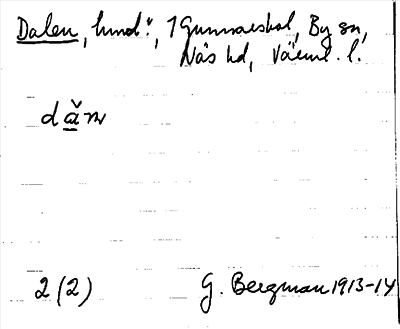 Dalen, hmd:n, 1 Gunnarskal, By sn,
Näs hd, Värml. l.
dăn
2 (2) G. Bergman 1913-14